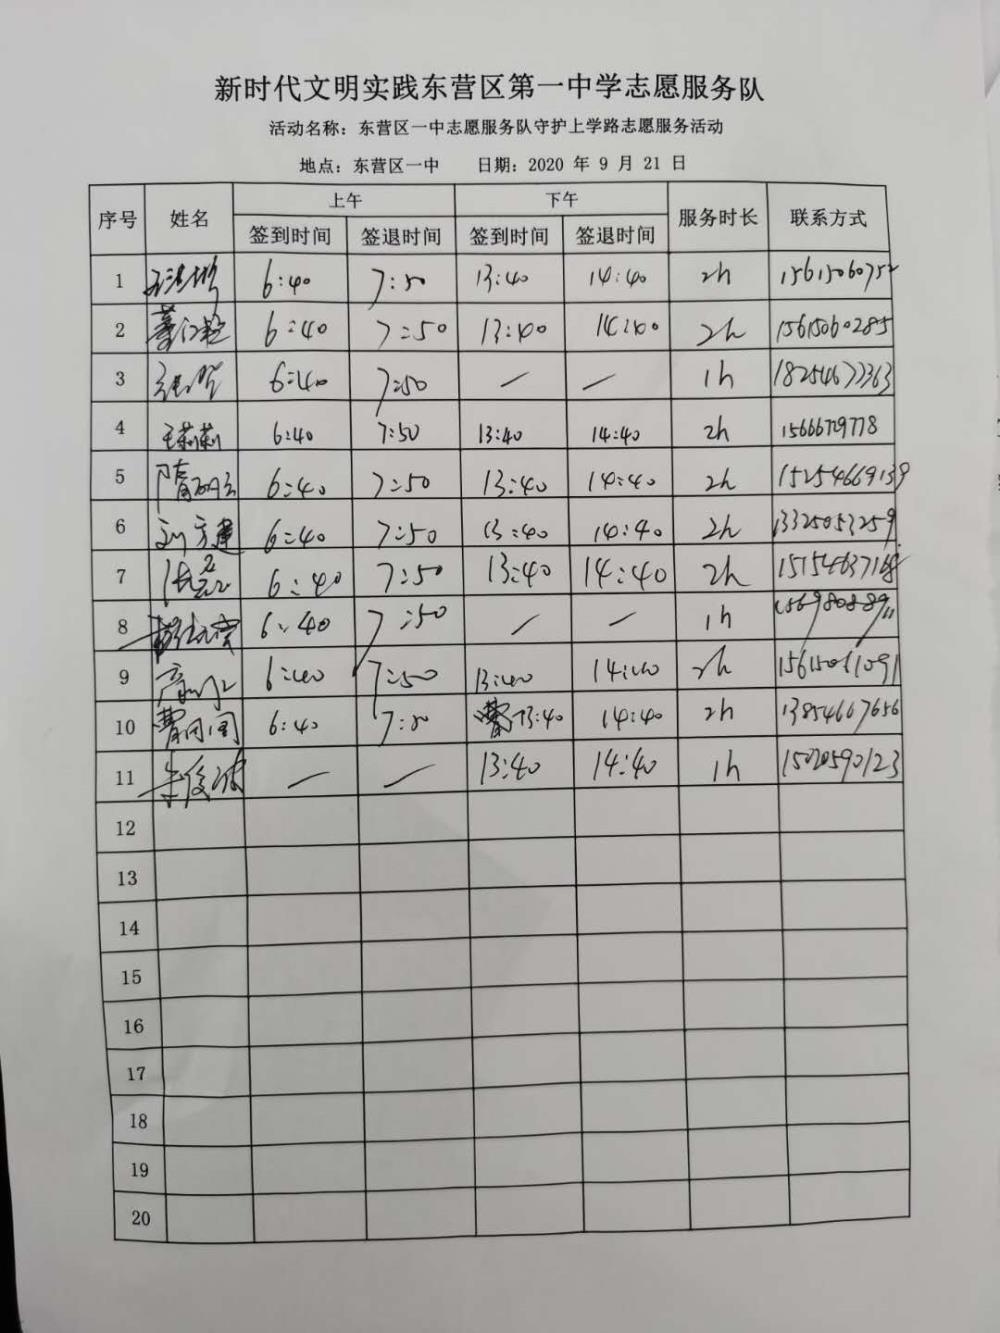 新时代文明实践东营区第一中学志愿服务队
活动名称：东营区一中志愿服务队守护上学路志愿服务活动
地点：东营区一中 日期：2020 年 9 月 21 日
序号 姓名 上午 下午 服务时长 联系方式
签到时间 签退时间 签到时间 签退时间
1 6:40 7:50 13:40 14:40 2h 15615060752
2 6:40 7:50 13:40 14:40 2h 15615060285
3 6:40 7:50 — — 1h 18254673363
4 王莉莉 6:40 7:50 13:40 14:40 2h 15666709778
5 6:40 7:50 13:40 14:40 2h 15254669139
6 刘方建 6:40 7:50 13:40 14:40 2h 13325053259
7 6:40 7:50 13:40 14:40 2h 15154637168
8 6:40 7:50 — — 1h
9 6:40 7:50 13:40 14:40 2h 15615011091
10 6:40 7:50 13:40 14:40 2h 13854667656
11 朱俊波 — — 13:40 14:40 1h 15020590123
12
13
14
15
16
17
18
19
20